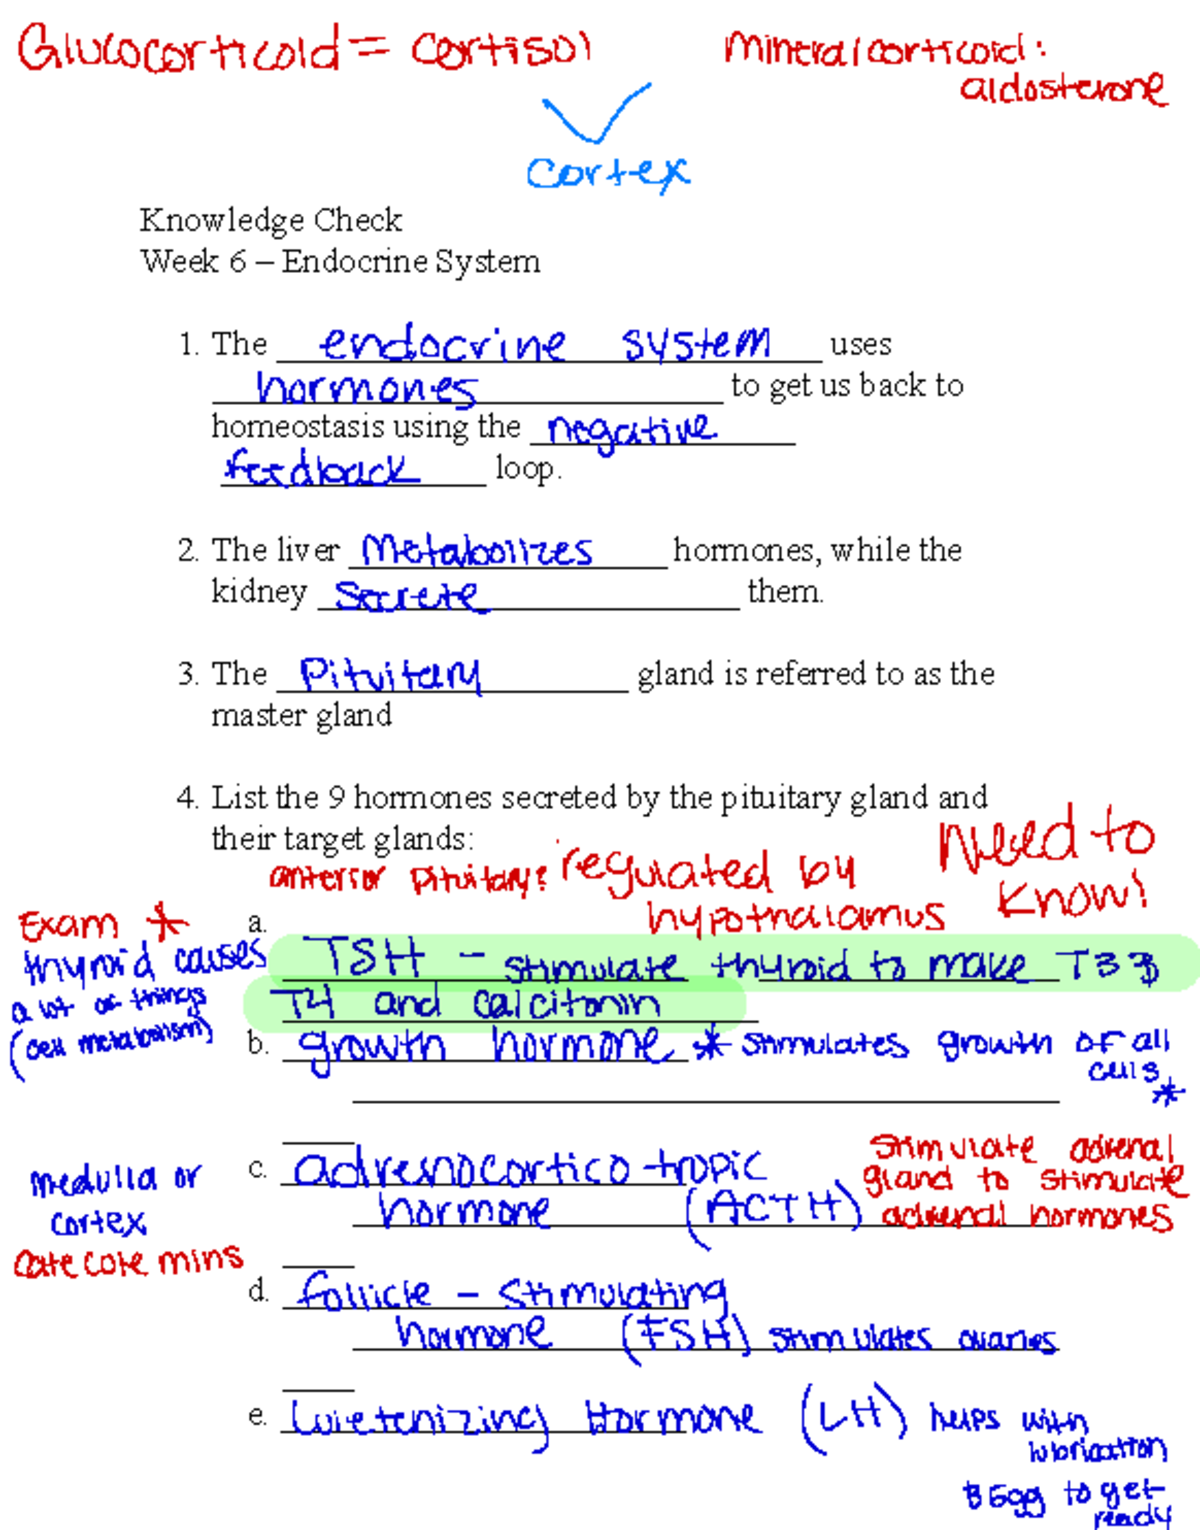 Glucocorticoid = cortisol
Mineralcorticoid:
aldosterone
cortex
Knowledge Check
Week 6 – Endocrine System
1. The endocrine system uses
hormones to get us back to
homeostasis using the negative
feedback loop.
2. The liver Metabolizes hormones, while the
kidney Secrete them.
3. The Pituitary gland is referred to as the
master gland
4. List the 9 hormones secreted by the pituitary gland and
their target glands:
Need to
Know!
anterior pituitary: regulated by
hypothalamus
Exam *
thyroid causes
a lot of things
(cell metabolism)
a.
TSH - stimulate thyroid to make T3 &
T4 and calcitonin
b. growth hormone * stimulates growth of all
cells *
medulla or
cortex
catecolemins
c. adrenocortico tropic
hormone (ACTH)
stimulate adrenal
gland to stimulate
adrenal hormones
d. follicle - stimulating
hormone (FSH) stimulates ovaries
e. Luietenizing Hormone (LH) helps with
lubrication
& Egg to get
ready